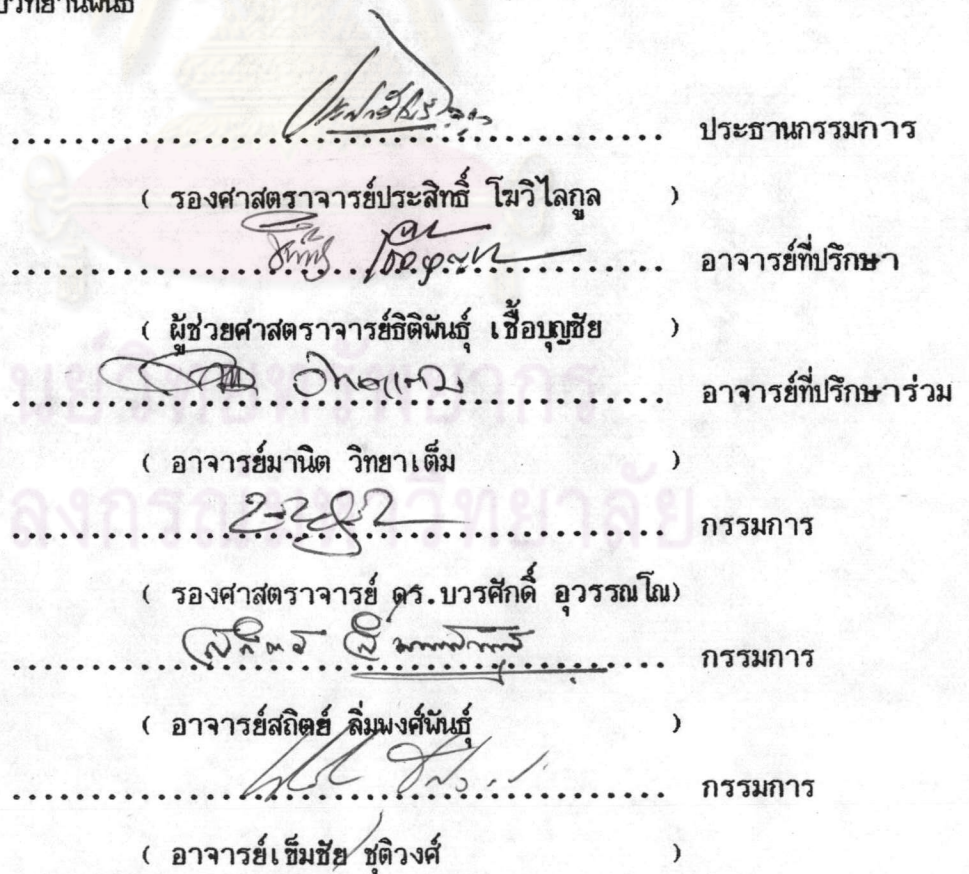 ................................................ ประธานกรรมการ
( รองศาสตราจารย์ประสิทธิ์ โฆวิไลกูล )
................................................ อาจารย์ที่ปรึกษา
( ผู้ช่วยศาสตราจารย์ธิติพันธุ์ เชื้อบุญชัย )
................................................ อาจารย์ที่ปรึกษาร่วม
( อาจารย์มานิต วิทยาเต็ม )
................................................ กรรมการ
( รองศาสตราจารย์ ดร.บวรศักดิ์ อุวรรณโณ)
................................................ กรรมการ
( อาจารย์สถิตย์ ลิ่มพงศ์พันธุ์ )
................................................ กรรมการ
( อาจารย์เข็มชัย ชุติวงศ์ )